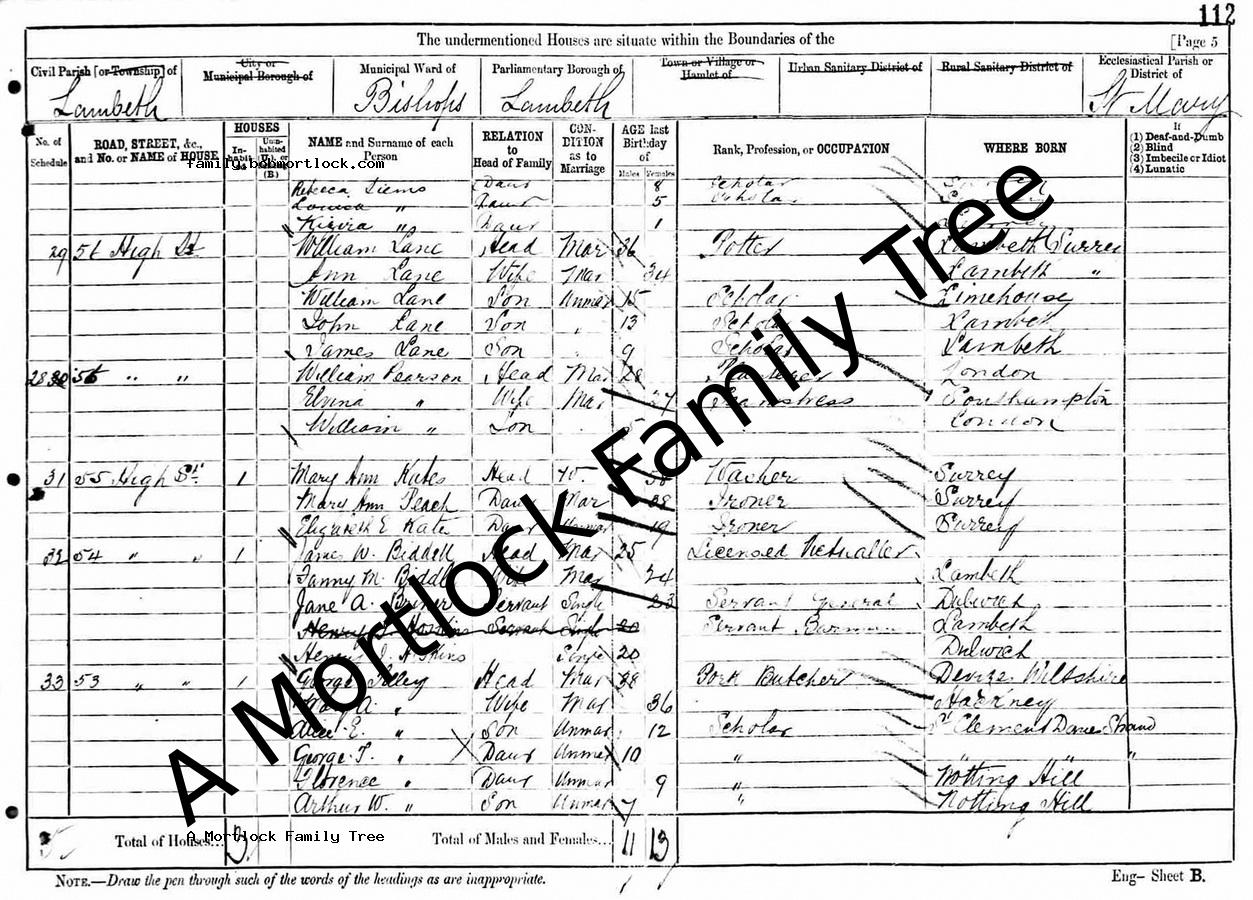 112
The undermentioned Houses are situate within the Boundaries of the
[Page 5
Civil Parish [or Township] of
City or Municipal Borough of
Municipal Ward of
Parliamentary Borough of
Town or Village or Hamlet of
Urban Sanitary District of
Rural Sanitary District of
Ecclesiastical Parish or District of
Lambeth Bishops Lambeth St Mary
No. of Schedule
ROAD, STREET, &c., and No. or NAME of HOUSE
HOUSES
In-habited
Unin-habited
(B)
NAME and Surname of each Person
RELATION to Head of Family
CON-DITION as to Marriage
AGE last Birthday of
Males Females
Rank, Profession, or OCCUPATION
WHERE BORN
If
(1) Deaf-and-Dumb
(2) Blind
(3) Imbecile or Idiot
(4) Lunatic
family.bobmortlock.com
Rebecca Daur 8 Scholar
Louisa " Daur 5 Schola
" Daur 1
29 56 High St William Lane Head Mar 36 Potter Lambeth Surrey
Ann Lane Wife Mar 34 Lambeth "
William Lane Son Unmar 15 Scholar Limehouse
John Lane Son 13 Scholar Lambeth
James Lane Son 9 Scholar Lambeth
56 " " William Pearson Head Mar 28 London
Elvina " Wife Mar 27 Seamstress Southampton
William " Son 5 London
31 55 High St. 1 Mary Ann Kates Head W. Washer Surrey
Mary Ann Peach Daur Mar 28 Ironer Surrey
Elizabeth E Kate Daur Unmar 19 Ironer Surrey
32 54 " " 1 James W. Biddell Head Mar 25 Licensed Victualler
Fanny M. Biddell Wife Mar 24 Lambeth
Jane A. Servant Single 23 Servant General Dulwich
Henry Servant Single 20 Servant Barman Lambeth
Henry J. 20 Dulwich
33 53 " " 1 George Tilley Head Mar 38 Pork Butcher Devizes Wiltshire
A. " Wife Mar 36 Hackney
Alice E. " Son Unmar 12 Scholar St Clement Danes Strand
George T. " Daur Unmar 10 " " "
Florence " Daur Unmar 9 " Notting Hill
Arthur W. " Son Unmar 7 " Notting Hill
Total of Houses... 3
Total of Males and Females... 11 13
A Mortlock Family Tree
A Mortlock Family Tree
NOTE.—Draw the pen through such of the words of the headings as are inappropriate.
Eng– Sheet B.